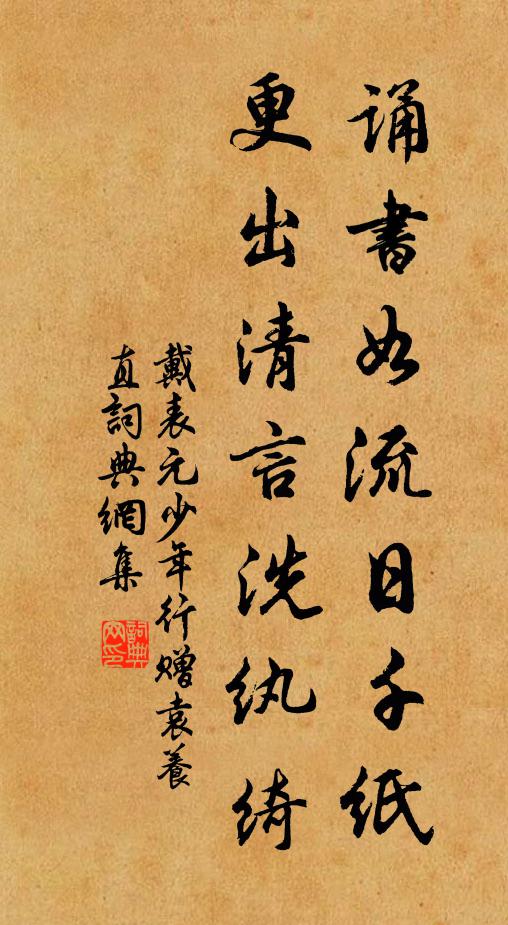 诵書如流日千紙
更出清言洗纨绮
戴表元少年行赠袁養
直詞典網集
詞典网印